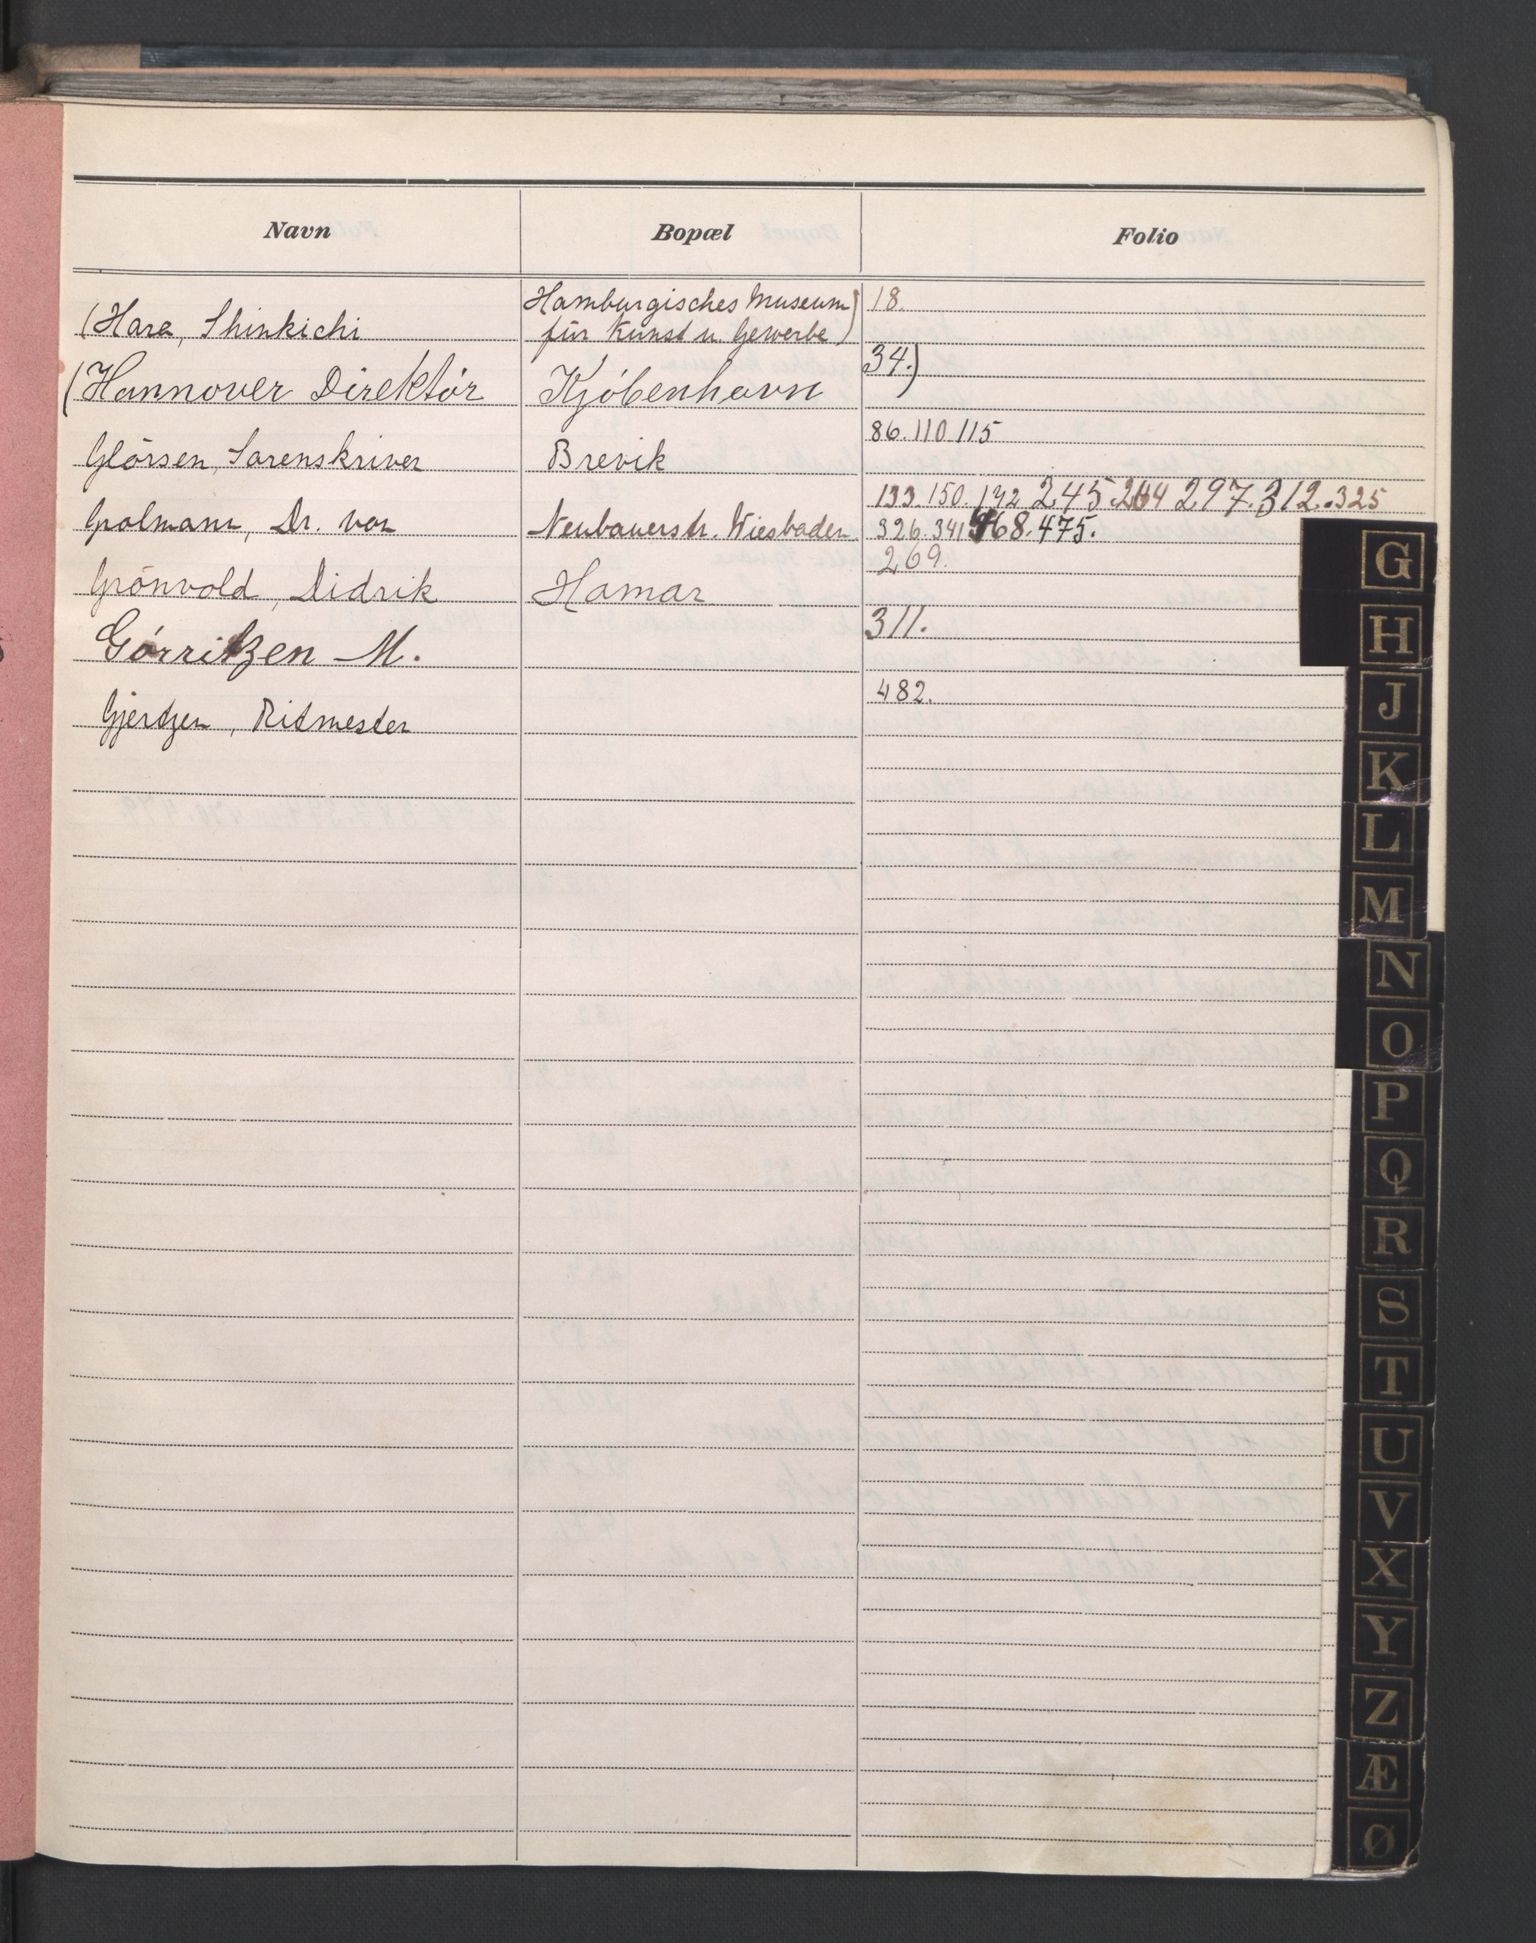 Navn Bopæl Folio
(Hara, Shinkichi Hamburgisches Museum für Kunst u. Gewerbe) 18.
(Hannover Direktór Kjóbenhavn 34.)
Glórsen, Sorenskriver Brevik 86. 110. 115
133. 150. 172 245. 264 297. 312. 325
Grolmann, Dr. von Neubauerstr. Wiesbaden. 326. 341 468. 475.
Grónvold, Didrik Hamar 269.
Górritzen M. 311.
Gjertzen, Ritmester 482.
G
H
J
K
L
M
N
O
P
Q
R
S
T
U
V
X
Y
Z
Æ
Ø